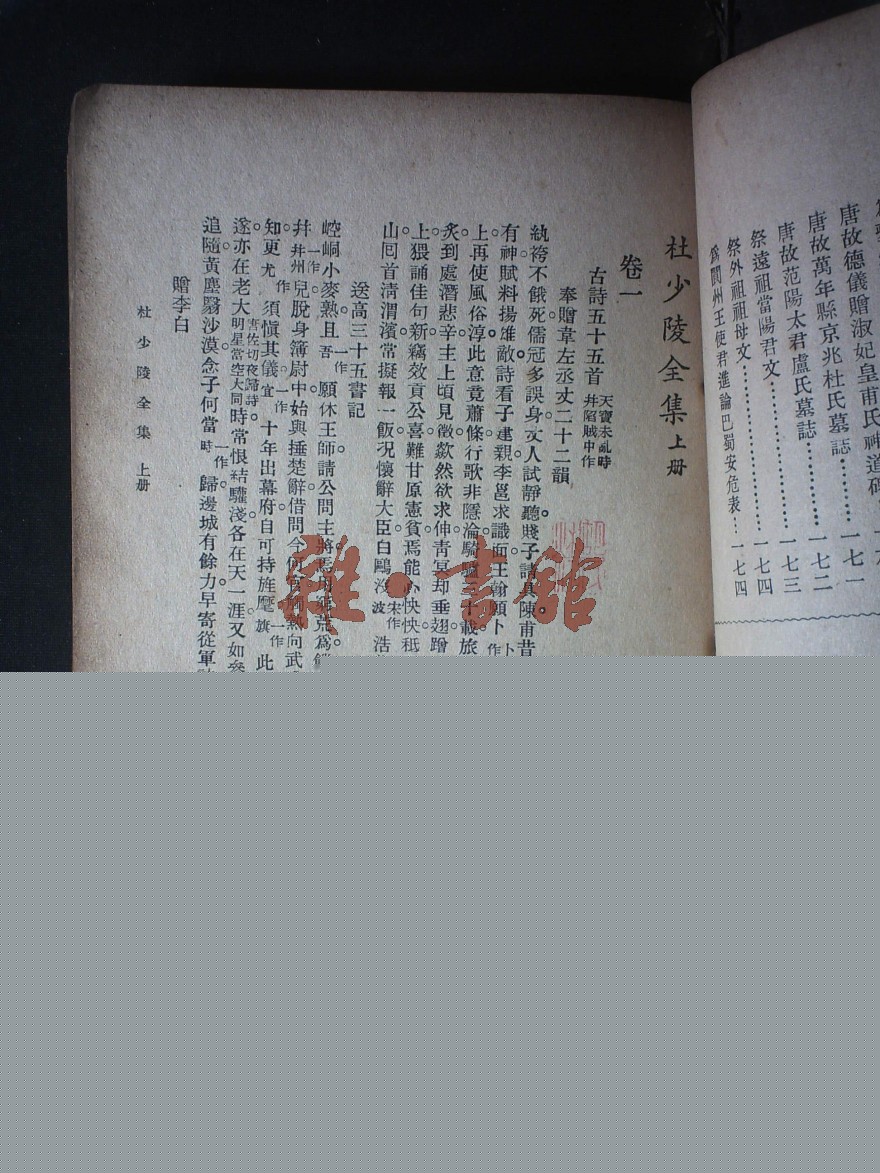 唐故德儀贈淑妃皇甫氏神道碑
唐故萬年縣京兆杜氏墓誌………一七一
唐故范陽太君盧氏墓誌………一七二
祭遠祖當陽君文………一七三
祭外祖祖母文………一七四
爲閬州王使君進論巴蜀安危表…一七四
杜少陵全集 上册
卷一
古詩五十五首 天寶未亂時并陷賊中作
奉贈韋左丞丈二十二韻
紈袴不餓死。儒冠多誤身。丈人試靜聽。賤子請具陳。甫昔
有神。賦料揚雄敵。詩看子建親。李邕求識面。王翰願卜
上。再使風俗淳。此意竟蕭條。行歌非隱淪。騎驢十載。旅
炙。到處潛悲辛。主上頃見徵。欻然欲求伸。青冥却垂翅。蹭
上。猥誦佳句新。竊效貢公喜。難甘原憲貧。焉能心怏怏。秪
山。囘首清渭濱。常擬報一飯。况懷辭大臣。白鷗沒 宋作波 浩
送高三十五書記
崆峒小麥熟。且 一作吾 願休王師。請公問主將。焉用窮荒爲。
并 一作并州 兒。脫身簿尉中。始與捶楚辭。借問今何官。觸熱向武
知。更 一作尤 須愼其儀 一作宜 十年出幕府。自可持旌麾 一作旗 此
遂。亦在老大時。常恨結驩淺。各在天一涯。又如參
追隨。黃塵翳沙漠。念子何當 一作時 歸。邊城有餘力。早寄從軍
贈李白
杜少陵全集 上册
雜·書館